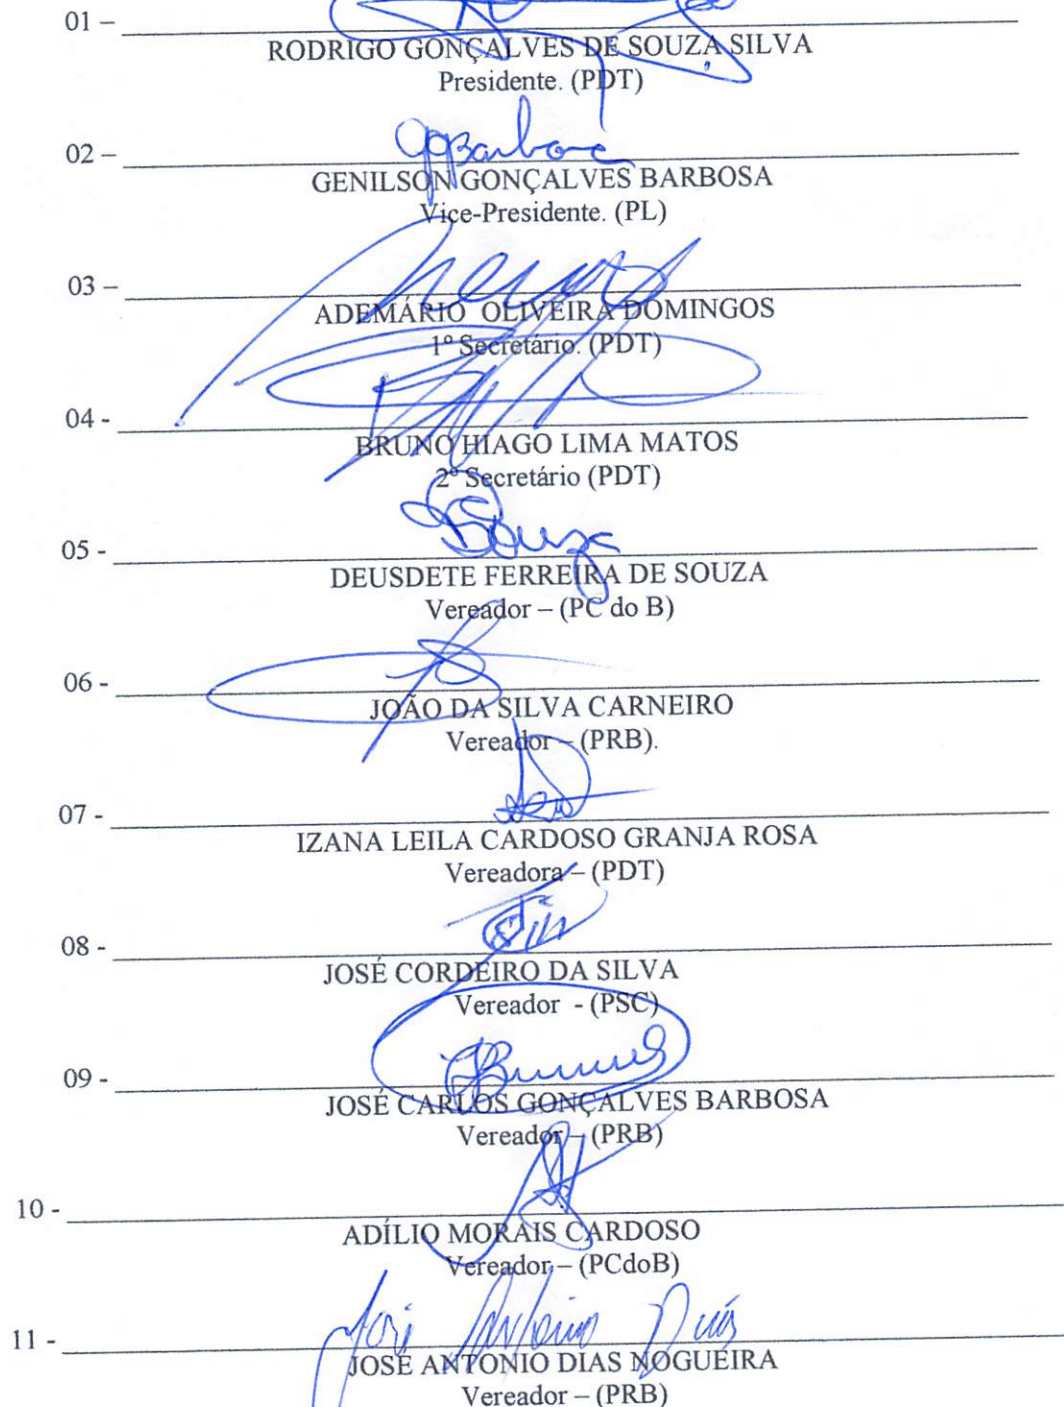 01 –
RODRIGO GONÇALVES DE SOUZA SILVA
Presidente. (PDT)
02 –
GPBarbosa
GENILSON GONÇALVES BARBOSA
Vice-Presidente. (PL)
03 –
ADEMÁRIO OLIVEIRA DOMINGOS
1º Secretário. (PDT)
04 -
BRUNO HIAGO LIMA MATOS
2º Secretário (PDT)
05 -
Souza
DEUSDETE FERREIRA DE SOUZA
Vereador – (PC do B)
06 -
JOÃO DA SILVA CARNEIRO
Vereador – (PRB).
07 -
IZANA LEILA CARDOSO GRANJA ROSA
Vereadora – (PDT)
08 -
JOSÉ CORDEIRO DA SILVA
Vereador - (PSC)
09 -
JOSÉ CARLOS GONÇALVES BARBOSA
Vereador – (PRB)
10 -
ADÍLIO MORAIS CARDOSO
Vereador – (PCdoB)
José Antonio Dias
11 -
JOSÉ ANTONIO DIAS NOGUEIRA
Vereador – (PRB)